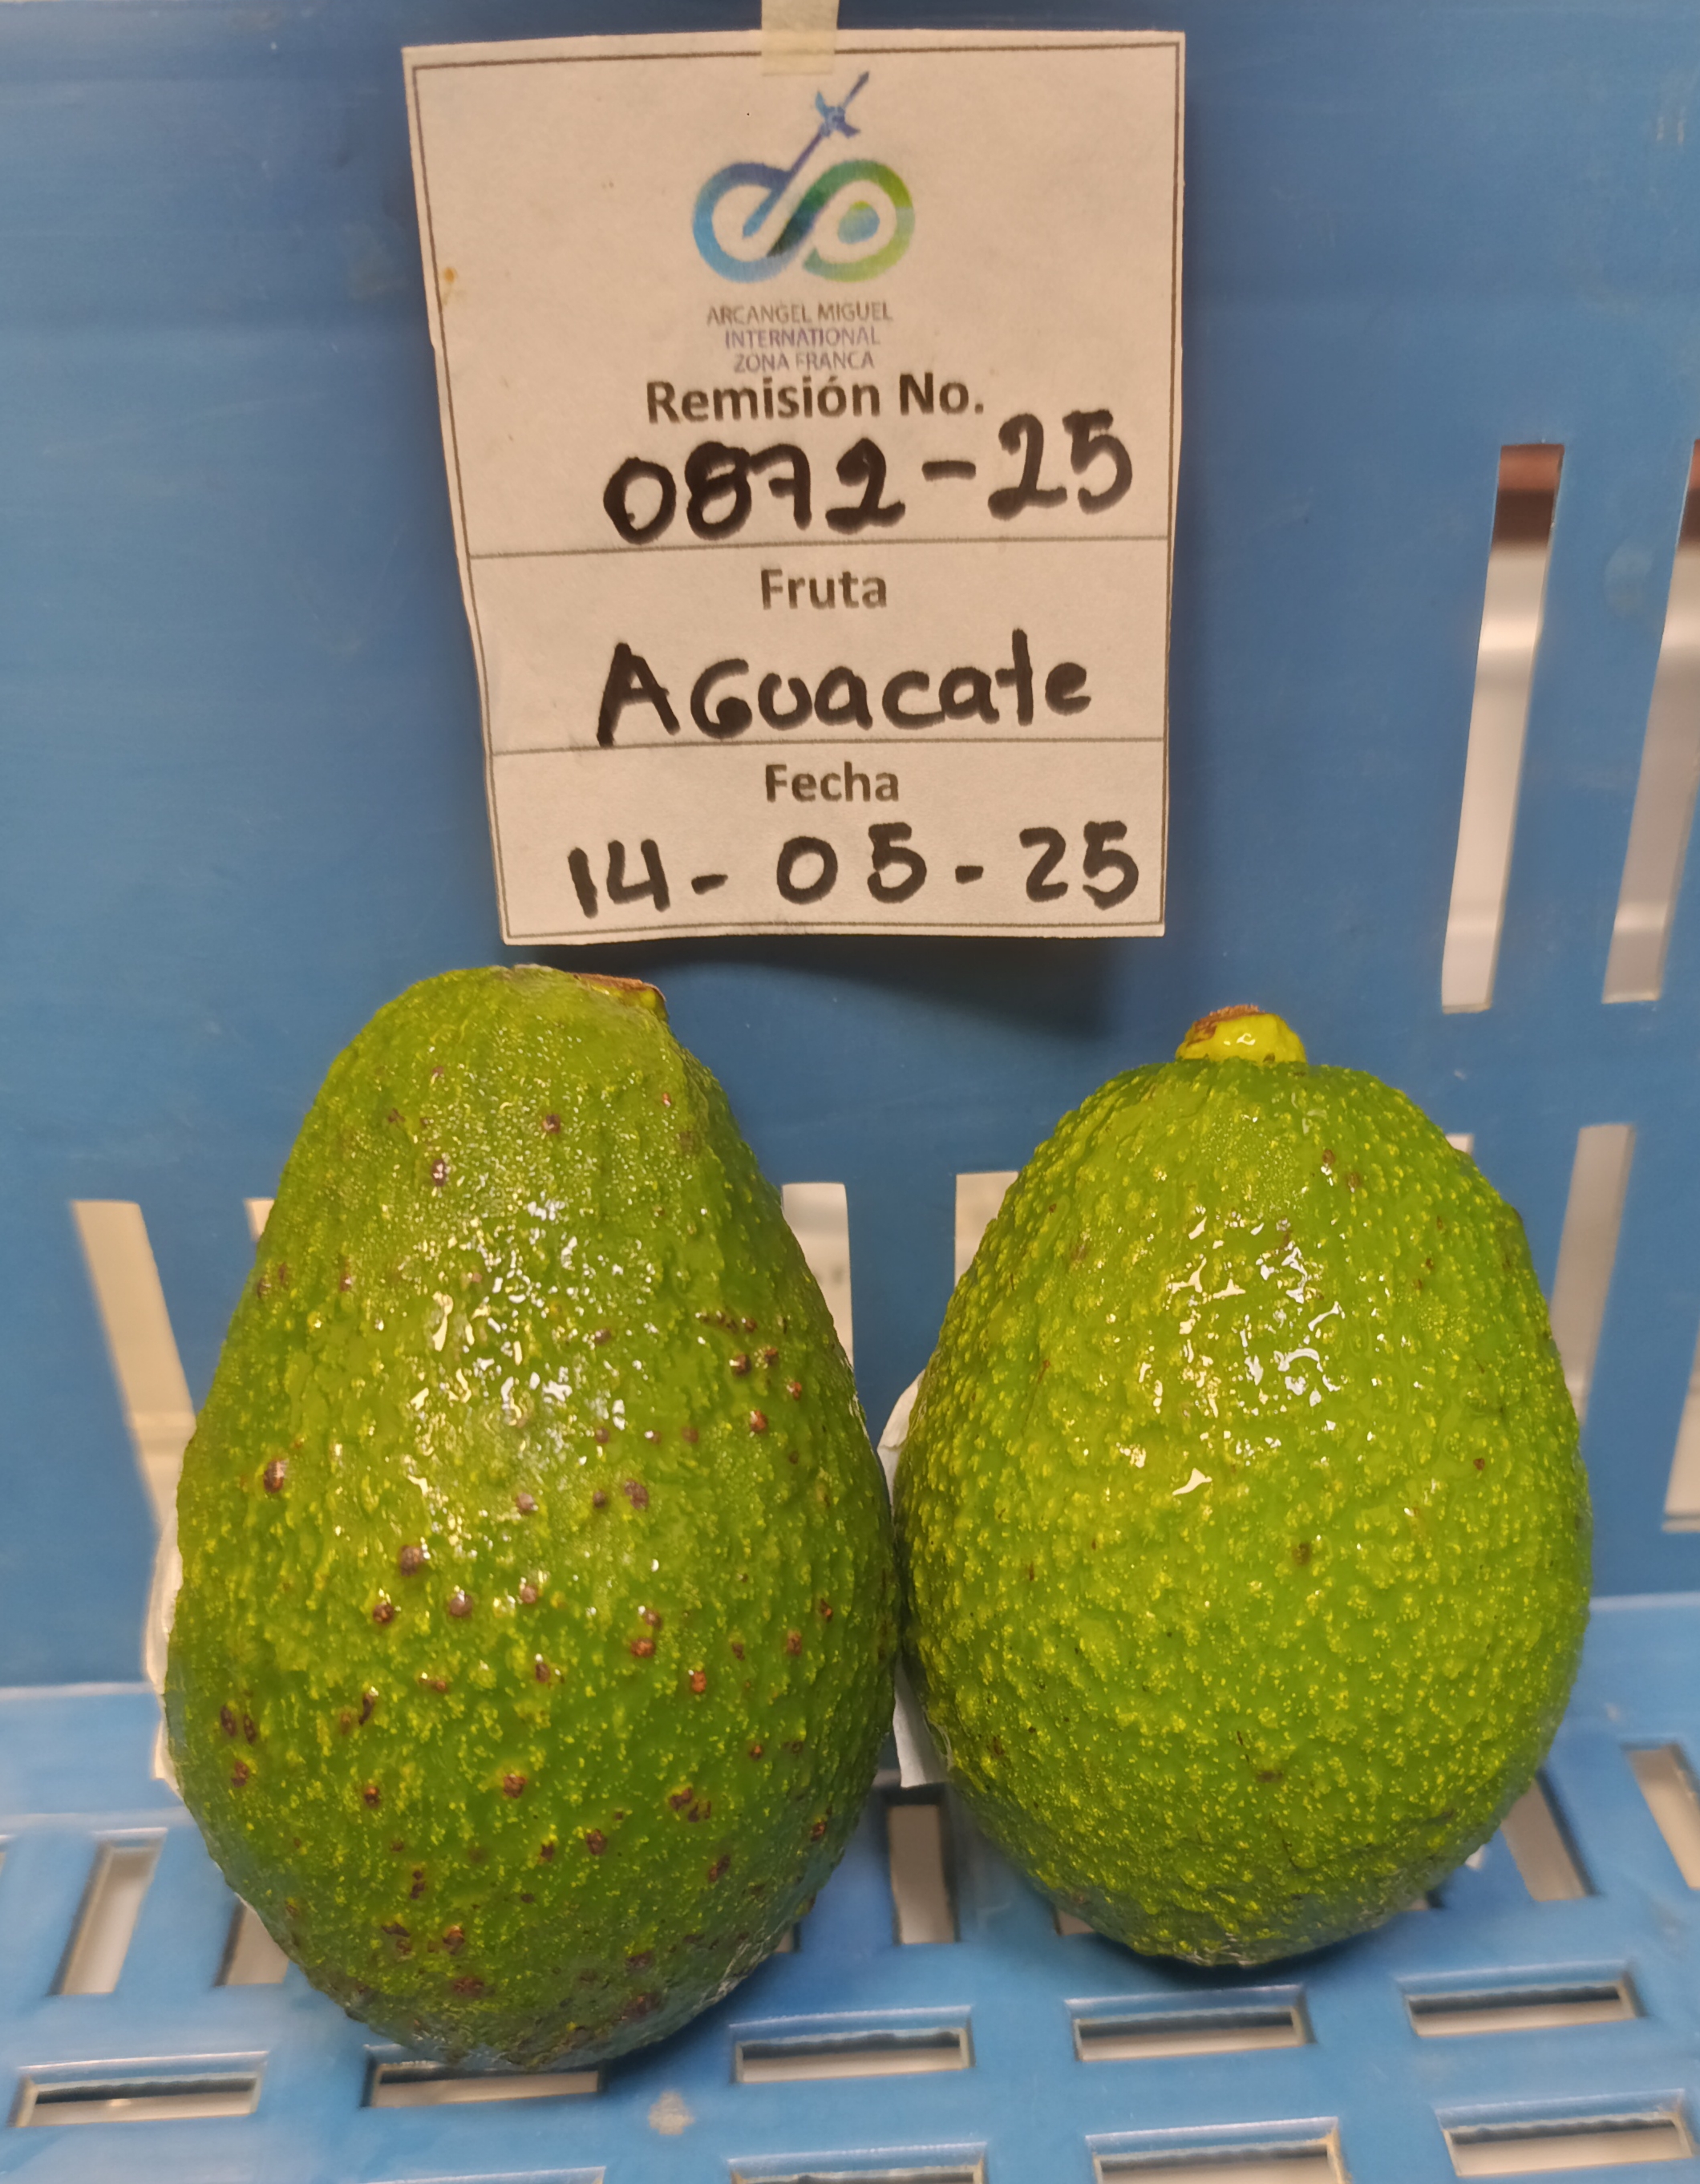 ARCANGEL MIGUEL
INTERNATIONAL
ZONA FRANCA
Remisión No.
0872-25
Fruta
AGuacate
Fecha
14-05-25